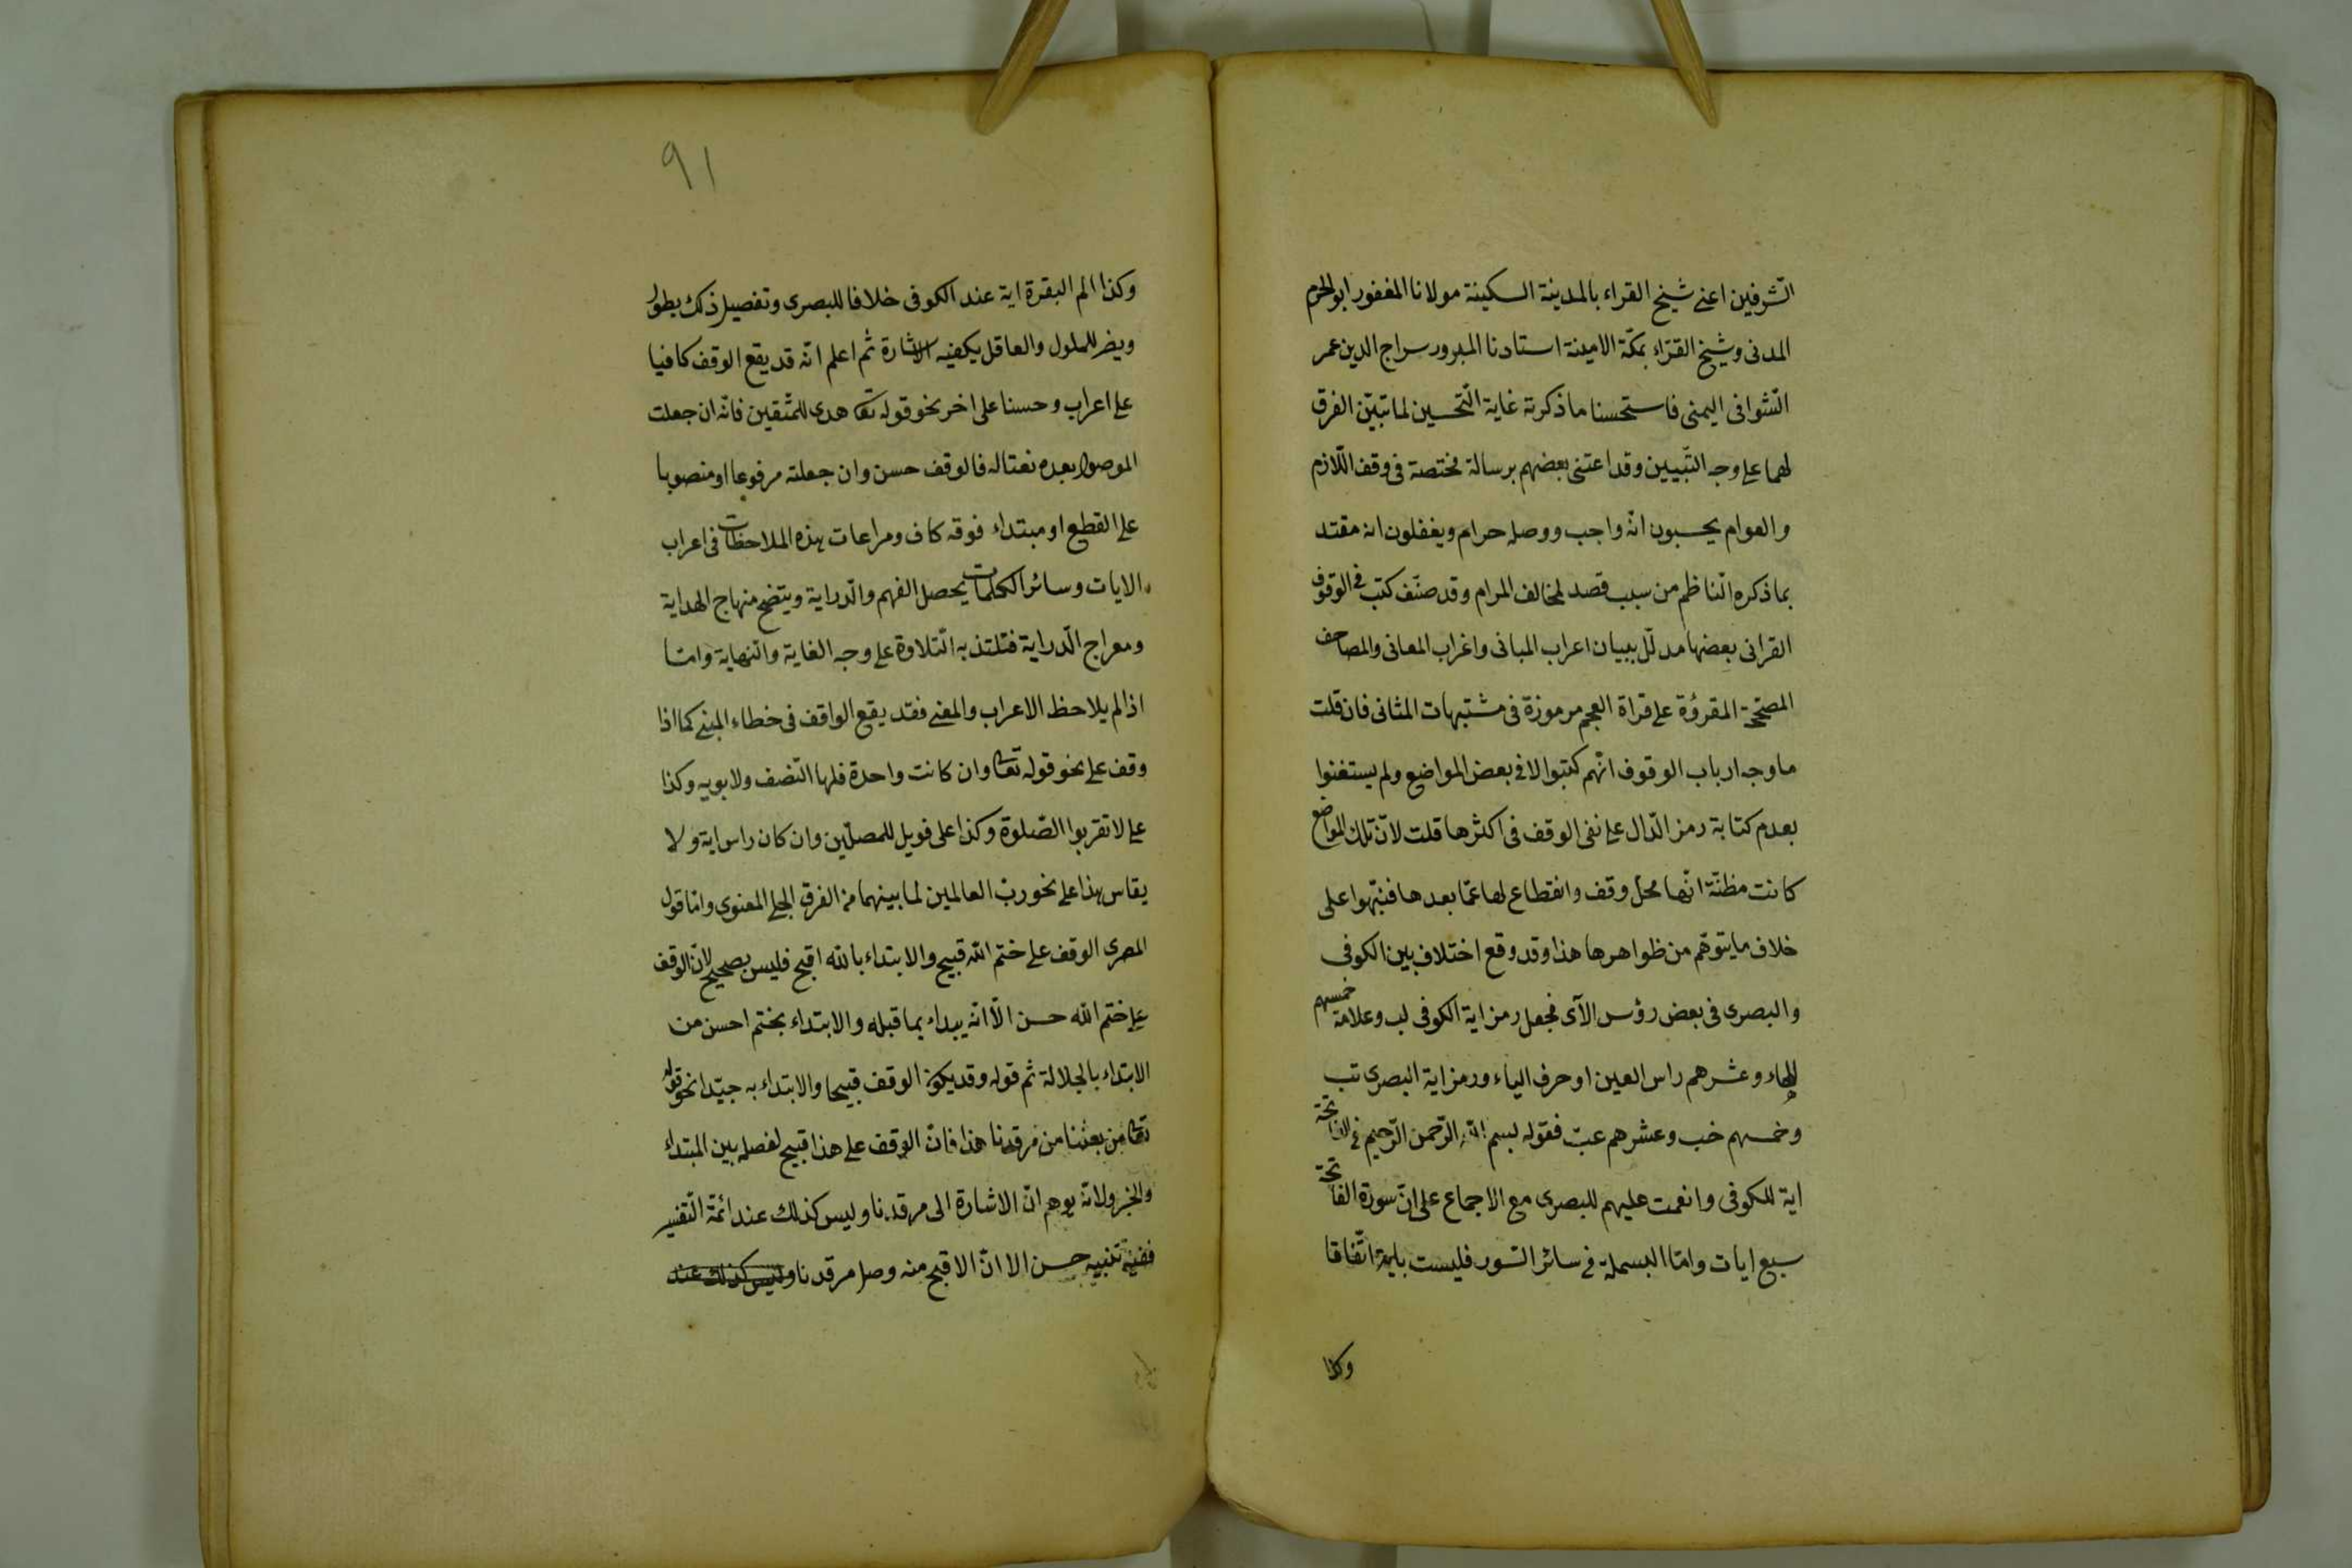 الشرفين اعنى شيخ القراء بالمدينة السكينة مولانا المغفور ابو الحزم
المدنى وشيخ القرّاء بمكّة الامينة استادنا المبرور سراج الدين عمر
الشوافى اليمنى فاستحسنا ما ذكرته غاية التّحسين لما تبيّن الفرق
لهما على وجه التّبيين وقد اعتنى بعضهم برسالة مختصة فى وقف اللّازم
والعوام يحسبون انّه واجب ووصله حرام ويغفلون انه مقتد
بما ذكره النّاظم من سبب قصد لمخالف المرام وقد صنّف كتب فى الوقوف
القرانى بعضها مدلّل ببيان اعراب المبانى واغراب المعانى والمصاحف
المصحّحة المقروّة على قراة العجم مرموزة فى مشتبهات المثانى فان قلت
ما وجه ارباب الوقوف انّهم كتبوا لا فى بعض المواضع ولم يستغنوا
بعدم كتابة رمز الدّال على نفى الوقف فى اكثرها قلت لانّ تلك المواضع
كانت مظنّة انّها محل وقف وانقطاع لها عمّا بعدها فنبّهوا على
خلاف ما يتوهّم من ظواهرها هذا وقد وقع اختلاف بين الكوفى
والبصرى فى بعض رؤس الآى فجعل رمز اية الكوفى لب وعلامة خمسهم
الهاء وعشرهم راس العين او حرف الياء ورمز اية البصرى تب
وخمسهم خب وعشرهم عب فقوله بسم الله الرّحمن الرّحيم فى الفاتحة
اية للكوفى وانعمت عليهم للبصرى مع الاجماع على انّ سورة الفاتحة
سبع ايات وامّا البسملة فى سائر السّور فليست باية اتّفاقا
وكذا
٩١
وكذا الم البقرة اية عند الكوفى خلافا للبصرى وتفصيل ذلك يطول
ويضر للملول والعاقل يكفيه الاشارة ثم اعلم انّه قد يقع الوقف كافيا
على اعراب وحسنا على اخر نحو قوله تعا هدى للمتّقين فانّه ان جعلت
الموصول بعده نعتا له فالوقف حسن وان جعلته مرفوعا او منصوبا
على القطع او مبتداء فوقه كاف ومراعات هذه الملاحظات فى اعراب
الايات وسائر الكلمات يحصل الفهم والدّراية ويتضح منهاج الهداية
ومعراج الدّراية فتلتذ به التّلاوة على وجه الغاية والنّهاية وامّا
اذا لم يلاحظ الاعراب والمعنى فقد يقع الواقف فى خطاء المبنى كما اذا
وقف على نحو قوله تعا وان كانت واحدة فلها النّصف ولابويه وكذا
على لا تقربوا الصّلوة وكذا على فويل للمصلّين وان كان راس اية ولا
يقاس هذا على نحو ربّ العالمين لما بينهما من الفرق الجلى المعنوى وامّا قول
المصرى الوقف على ختم الله قبيح والابتداء بالله اقبح فليس بصحيح لانّ الوقف
على ختم الله حسن الّا انّه يبداء بما قبله والابتداء بختم احسن من
الابتداء بالجلالة ثم قوله وقد يكون الوقف قبيحا والابتداء به جيّدا نحو قوله
تعا من بعثنا من مرقدنا هذا فانّ الوقف على هذا قبيح لفصله بين المبتداء
والخبر ولانّه يوهم انّ الاشارة الى مرقدنا وليس كذلك عند ائمّة التّفسير
ففيه تنبيه حسن الا انّ الاقبح منه وصل مرقدنا وليس كذلك عند